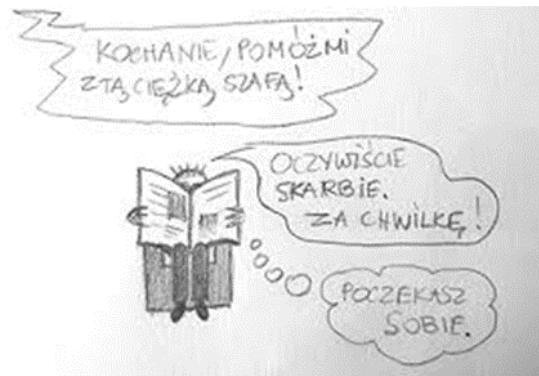 KOCHANIE, POMÓŻ MI
Z TĄ CIĘŻKĄ SZAFĄ!
OCZYWIŚCIE
SKARBIE.
ZA CHWILKĘ!
POCZEKASZ
SOBIE.